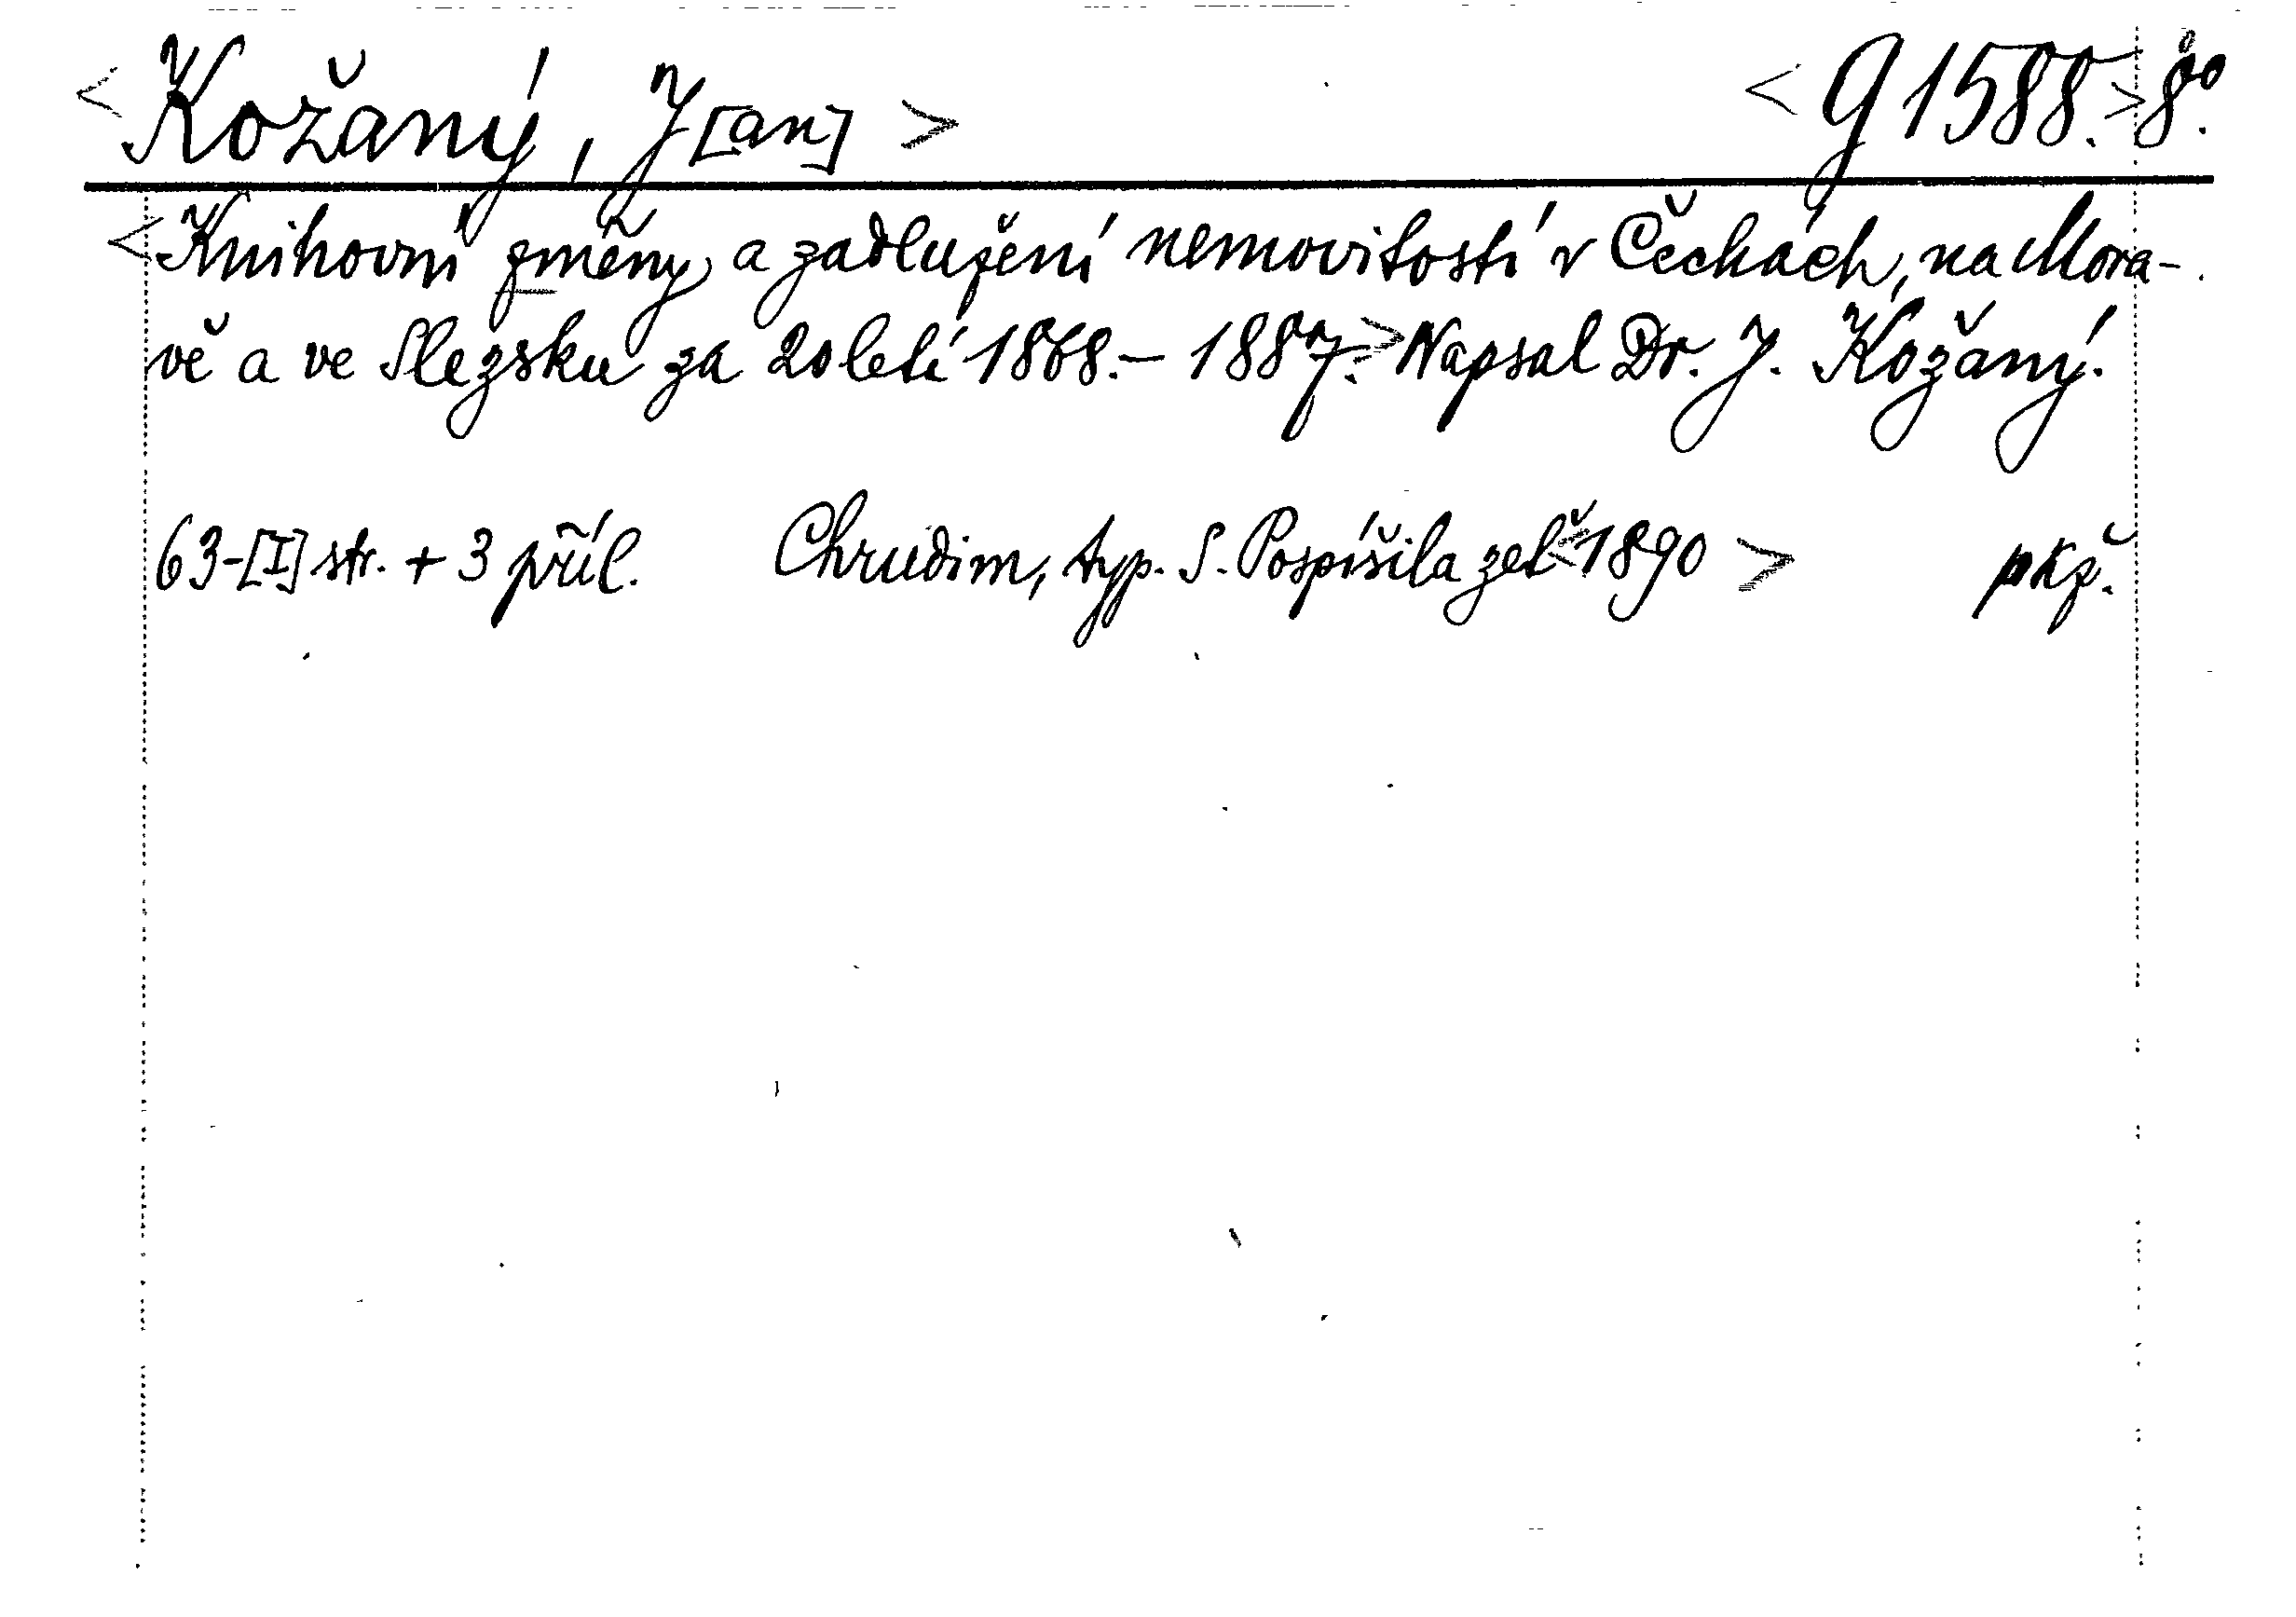 <Kožaný, J[an]> <g 1588.> 8°.
<Knihovní změny a zadlužení nemovitostí v Čechách, na Mora-
vě a ve Slezsku za 20letí 1868.–1887.> Napsal Dr. J. Kožaný.
63-[I] str. + 3 příl. Chrudim, typ. S. Pospíšila zeť <1890> pkž.